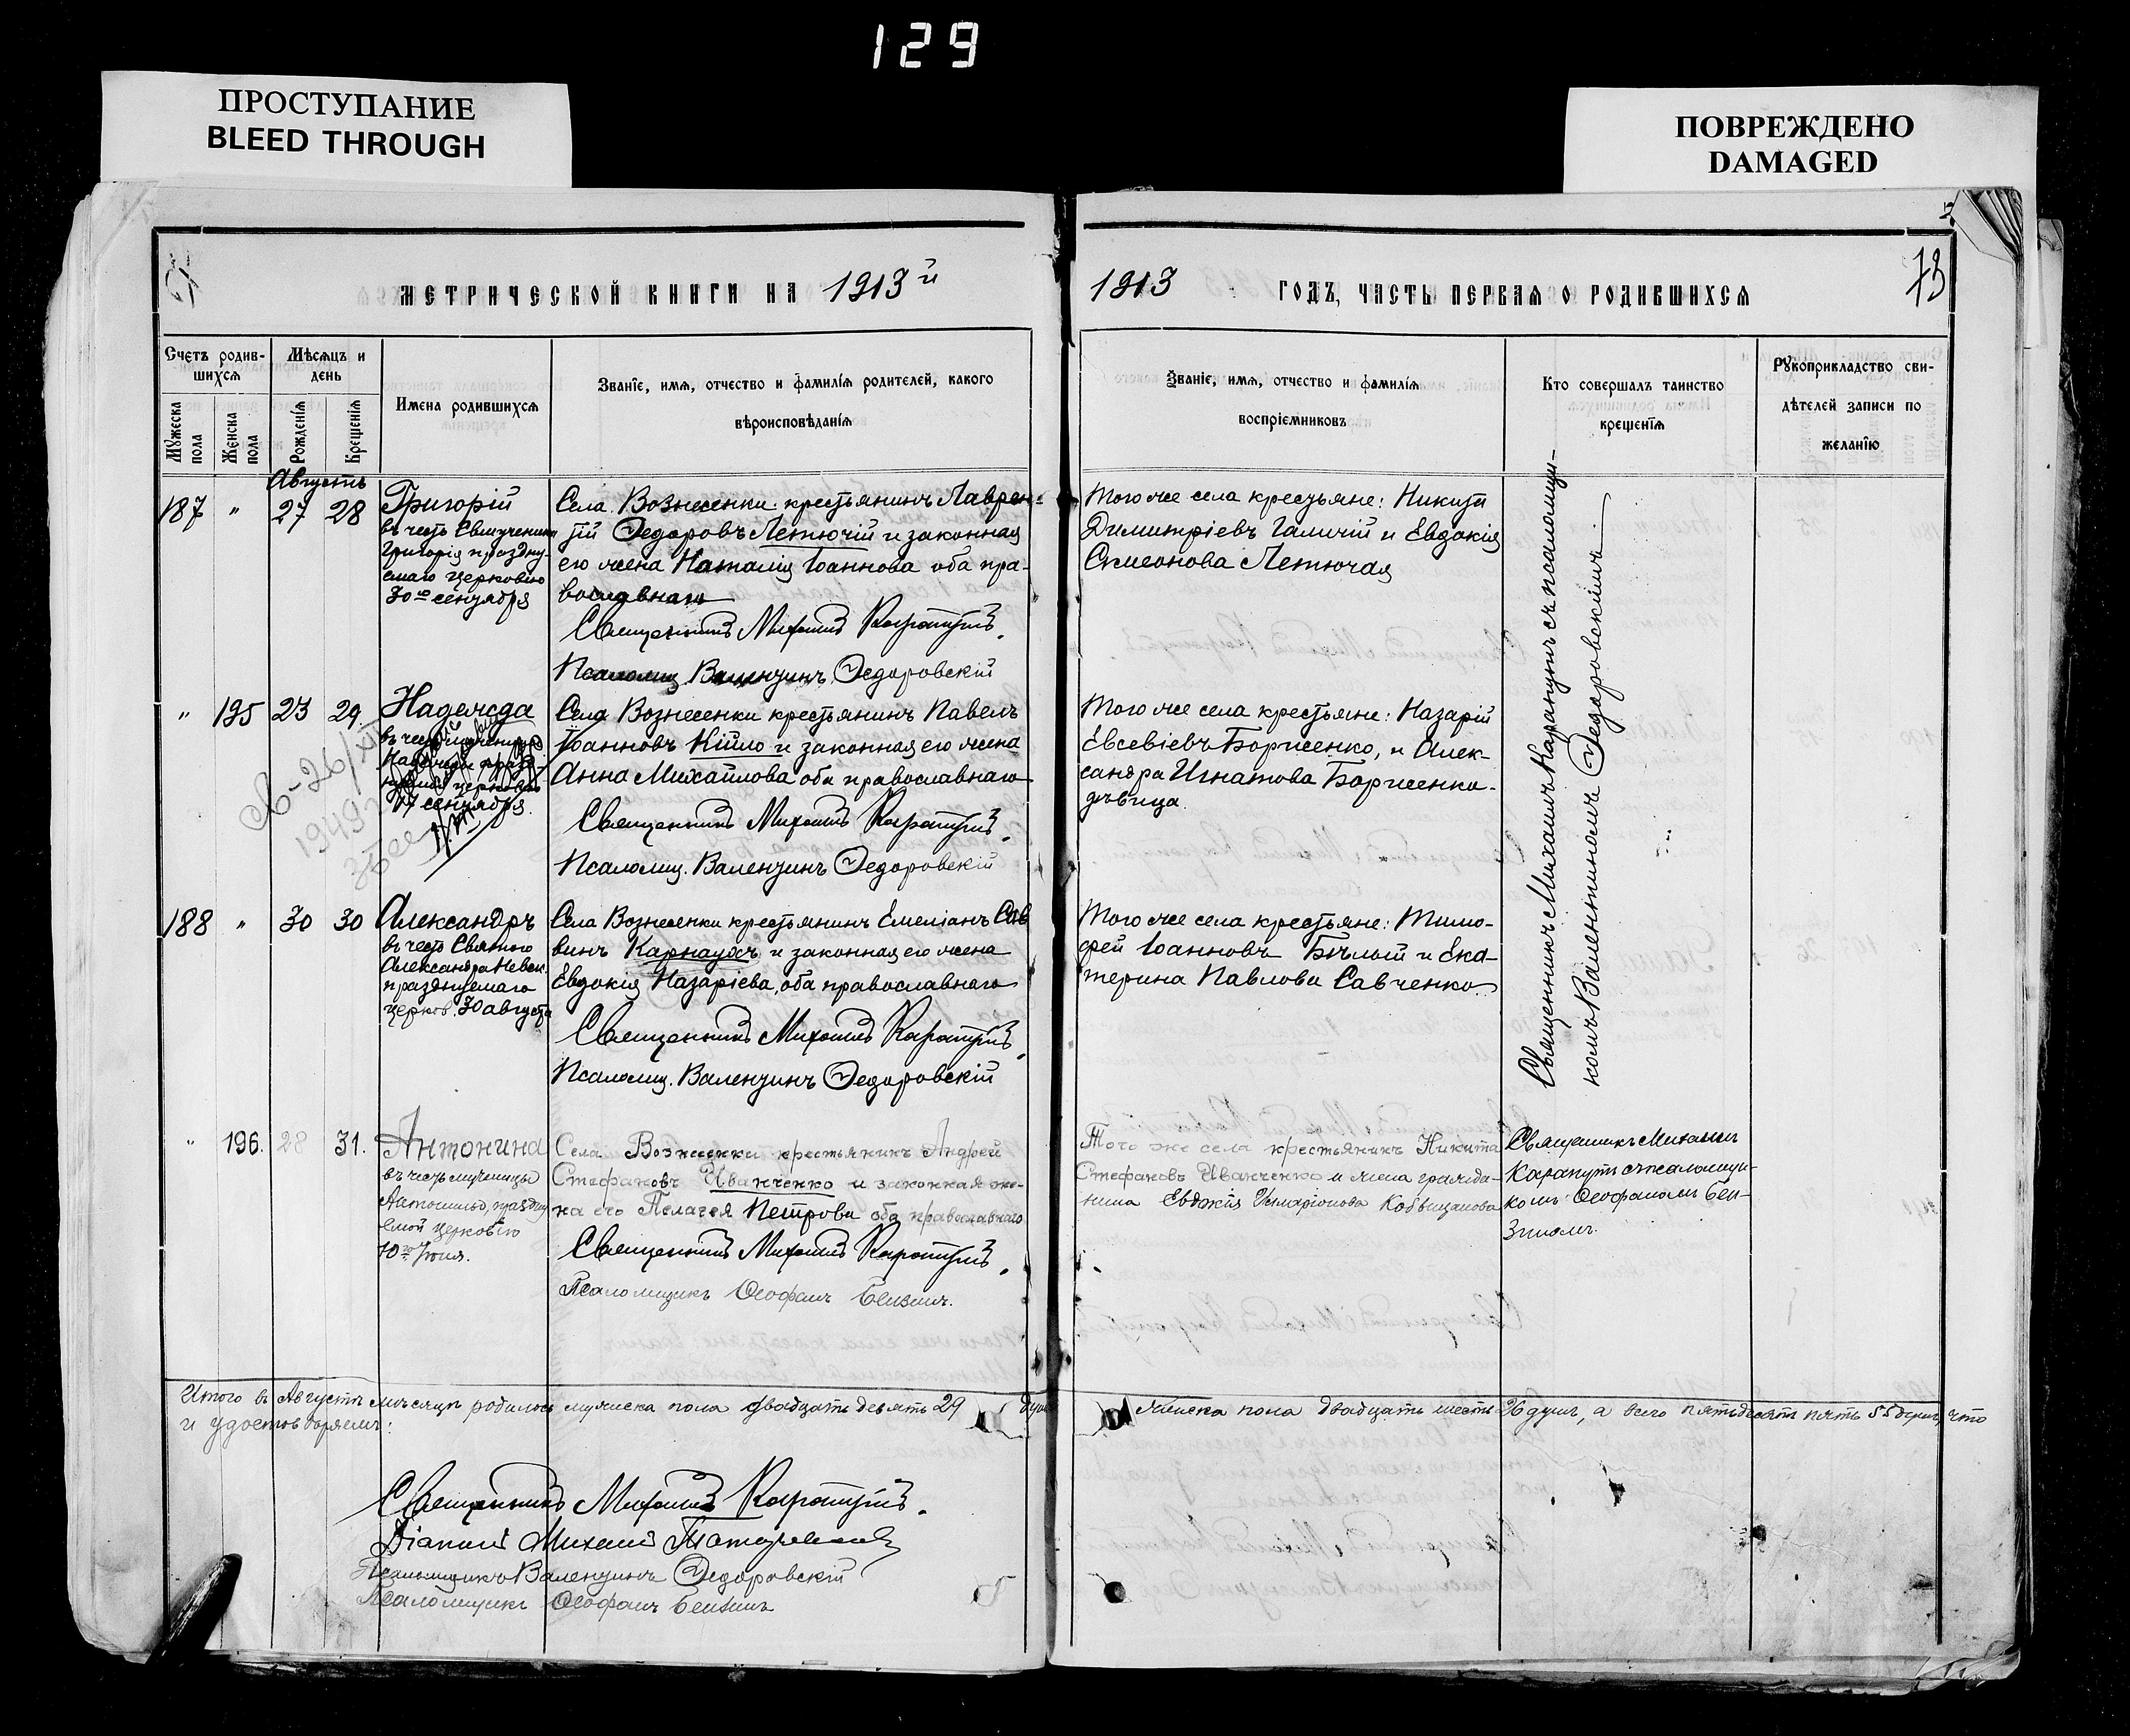 129
ПРОСТУПАНИЕ
BLEED THROUGH
ПОВРЕЖДЕНО
DAMAGED
МЕТРИЧЕСКОЙ КНИГИ НА 1913й
Счетъ родив-
шихся
Мѣсяцъ и
день
Имена родившихся
Званіе, имя, отчество и фамилія родителей, какого
вѣроисповѣданія
Мужеска
пола
Женска
пола
Рожденія
Крещенія
Августъ
187 " 27 28
Григорій
въ честь Свящ
Григорія праздну-
емаго церковію
30го сентября
Села Вознесенки крестьянинъ Лаврен-
тій Ѳедоровъ Летючій и законная
его жена Наталія Іоаннова оба пра-
вославнаго
Священникъ Михаилъ Карапутъ.
Псаломщ. Валентинъ Ѳедоровскій
" 195 23 29.
Надежда
въ честь мученицы
17 сентября
св-26/XII
1949
Села Вознесенки крестьянинъ Павелъ
Іоанновъ Кійло и законная его жена
Анна Михайлова оба православнаго
Священникъ Михаилъ Карапутъ.
Псаломщ. Валентинъ Ѳедоровскій
188 " 30 30
Александръ
въ честь Святого
Александра Невск.
празднуемаго
церков. 30 августа
Села Вознесенки крестьянинъ Емеліанъ Сав
винъ Карнаухъ и законная его жена
Евдокія Назаріева, оба православнаго
Священникъ Михаилъ Карапутъ.
Псаломщ. Валентинъ Ѳедоровскій
" 196. 28 31.
Антонина
въ честь мученицы
Антонины, праздну
емой церковію
10го Іюня.
Села Вознесенки крестьянинъ Андрей
Стефановъ Иванченко и законная же-
на его Пелагея Петрова оба православнаго
Священникъ Михаилъ Карапутъ.
Псаломщикъ Ѳеофанъ Бензинъ.
Итого въ Августѣ мѣсяцѣ родилось мужеска пола двадцать девять 29 душъ
и удостовѣряемъ:
Священникъ Михаилъ Карапутъ.
Діаконъ Михаилъ
Псаломщикъ Валентинъ Ѳедоровскій
Псаломщикъ Ѳеофанъ Бензинъ
1913 ГОДЪ, ЧАСТЬ ПЕРВАЯ О РОДИВШИХСЯ
73
Званіе, имя, отчество и фамилія
воспріемниковъ
Кто совершалъ таинство
крещенія
Рукоприкладство сви-
дѣтелей записи по
желанію
Того же села крестьяне: Никита
Димитріевъ Галичій и Евдокія
Симеонова Летючая
Того же села крестьяне: Назарій
Евсевіевъ Борисенко, и Алек-
сандра Игнатова Борисенко-
дѣвица.
Того же села крестьяне: Тимо-
фей Іоанновъ Бѣлый и Ека-
терина Павлова Савченко
Священникъ Михаилъ Карапутъ съ псаломщи-
комъ Валентиномъ Ѳедоровскимъ
Того же села крестьянинъ Никита
Стефановъ Иванченко и жена гражда-
нина Евдокія Илларіонова
Священникъ Михаилъ
Карапутъ съ псаломщи-
комъ Ѳеофаномъ Бен-
зинымъ.
женска пола двадцать шесть 26 душъ, а всего пятьдесятъ пять 55 душъ, что